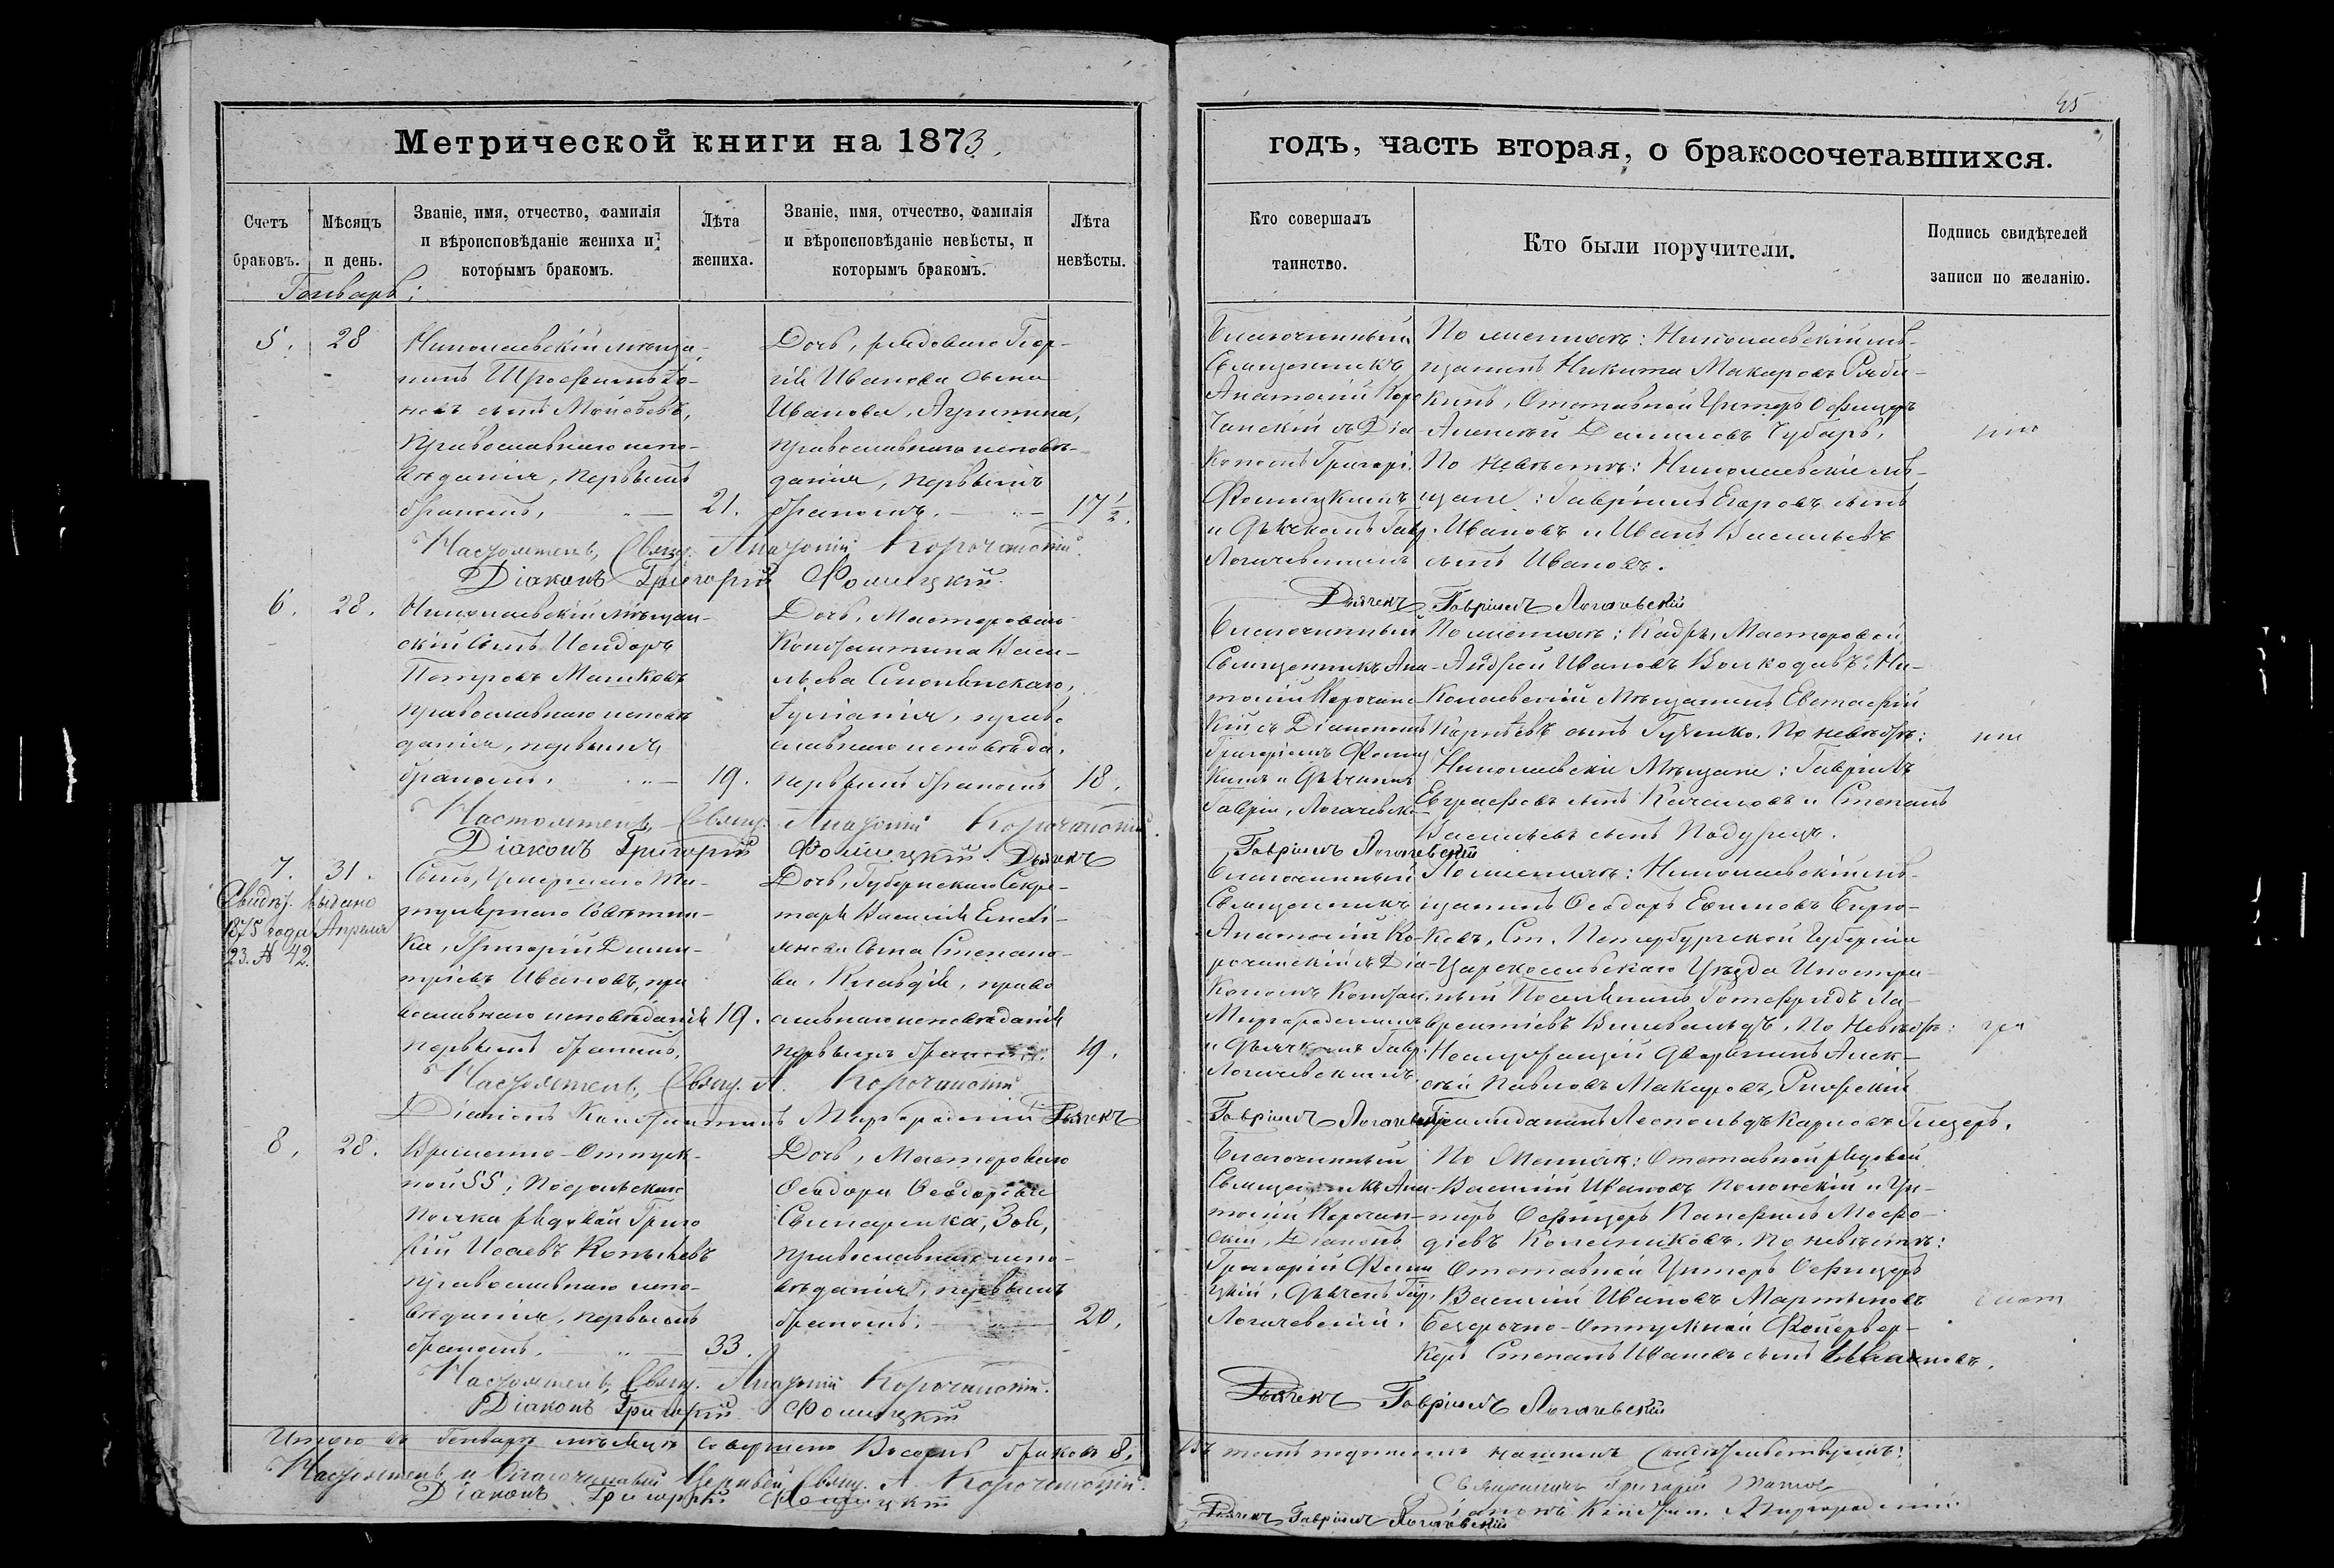 45
Метрической книги на 1873.
годъ, часть вторая, о бракосочетавшихся.
Счетъ браковъ.
Мѣсяцъ и день.
Званіе, имя, отчество, фамилія
и вѣроисповѣданіе жениха и
которымъ бракомъ.
Лѣта жениха.
Званіе, имя, отчество, фамилія
и вѣроисповѣданіе невѣсты, и
которымъ бракомъ.
Лѣта невѣсты.
Кто совершалъ
таинство.
Кто были поручители.
Подпись свидѣтелей
записи по желанію.
Генварь:
5.
28
Николаевскій мѣща-
нинъ
православнаго испо-
вѣданія, первымъ
бракомъ.
21.
Дочь, рядоваго Геор-
гія Иванова сына
Иванова,
православнаго исповѣ-
данія, первымъ
бракомъ.
17½.
Благочинный
Священникъ
Анатолій Коро
чанскій съ Діа-
кономъ Григорі.
Фомицкимъ
и Дьячкомъ Гавр.
Логачевскимъ
По женихѣ: Николаевскій мѣ-
щанинъ Никита Макаровъ Ряби-
кинъ, Отставной Унтеръ Офицеръ
Алексѣй Даниловъ Чубарь,
По невѣстѣ: Николаевскіе мѣ-
щане: Гавріилъ Егоровъ сынъ
Ивановъ и Иванъ Васильевъ
сынъ Ивановъ.
Настоятель, Свящ. Анатолій Корочанскій.
Діаконъ Григорій Фомицкій.
Дьячекъ Гавріилъ Логачевскій
6.
28.
Николаевскій мѣщан-
скій сынъ Исидоръ
Петровъ Машковъ
православнаго исповѣ
данія, первымъ
бракомъ.
19.
Дочь, Мастероваго
Константина Васи-
льева Смоленскаго,
Іуліанія, право
славнаго исповѣда.
первымъ бракомъ
18.
Благочинный
Священникъ Ана-
толій Корочанс
кій съ Діакономъ
Григоріемъ Фомиц
кимъ и Дьячкомъ
Гавріи. Логачевск.
По женихѣ: Кадр. Мастеровой
Андрей Ивановъ Волкодавъ, Ни-
колаевскій Мѣщанинъ Евстафій
Корнѣевъ сынъ Гученко. По невѣстѣ:
Николаевскіе Мѣщане: Гавріилъ
Евграфовъ сынъ Качановъ и Степанъ
Васильевъ сынъ
Настоятель, Свящ. Анатолій Корочанскій.
Діаконъ Григорій Фомицкій. Дьячекъ
Гавріилъ Логачевскій
7.
31.
Свидѣт. выдано
1875 года Апреля
23. № 42.
Сынъ, Умершаго Ти-
тулярнаго Совѣтни-
ка, Григорій Дими-
тріевъ Ивановъ, пра
вославнаго исповѣданія
первымъ бракомъ,
19.
Дочь, Губернскаго Секре-
таря Василія Емелі-
янова сына Степано-
ва, Клавдія, право
славнаго исповѣданія
первымъ бракомъ.
19.
Благочинный
Священникъ
Анатолій Ко-
рочанскій съ Діа-
кономъ Констан.
Миргородскимъ
и Дьячкомъ Гавр.
Логачевскимъ
По женихѣ: Николаевскій мѣ-
щанинъ Ѳеодоръ Ефимовъ Бирю-
ковъ, Ст. Петербургской Губерніи
Царскосельскаго Уѣзда Иностра-
нный Поселянинъ Готфридъ Ла-
врентіевъ По Невѣстѣ:
Дворянинъ Алек-
сѣй Павловъ Макаровъ,
Леопольдъ Карловъ
Настоятель, Свящ. А. Корочанскій
Діаконъ Константинъ Миргородскій Дьячекъ
Гавріилъ Логачевскій
8.
28.
Временно-Отпуск-
ной 55; Подольскаго
полка рядовой Григо
рій Исаевъ
православнаго испо-
вѣданія, первымъ
бракомъ.
33.
Дочь, Мастероваго
Ѳеодора Ѳеодорова
Зоя,
православнаго испо-
вѣданія, первымъ
бракомъ.
20.
Благочинный
Священникъ Ана-
толій Корочан-
скій, Діаконъ
Григорій Фоми
цкій, Дьячекъ Гав.
Логачевскій.
По Женихѣ: Отставной рядовой
Василій Ивановъ и Ун-
теръ Офицеръ
Колесниковъ. По невѣстѣ:
Отставной Унтеръ Офицеръ
Василій Ивановъ Мартыновъ
Безсрочно-отпускной Фейервер-
керъ Степанъ Ивановъ сынъ Ивановъ.
Настоятель, Свящ. Анатолій Корочанскій.
Діаконъ Григорій Фомицкій
Дьячекъ Гавріилъ Логачевскій
Итого въ Генварѣ мѣсяцѣ совершено Восемь браковъ 8.
Въ томъ подписомъ нашимъ Свидѣтельствуемъ:
Настоятель и Благочинный Церквей, Свящ. А. Корочанскій.
Діаконъ Григорій Фомицкій
Священникъ Григорій
Діаконъ Констан. Миргородскій
Дьячекъ Гавріилъ Логачевскій